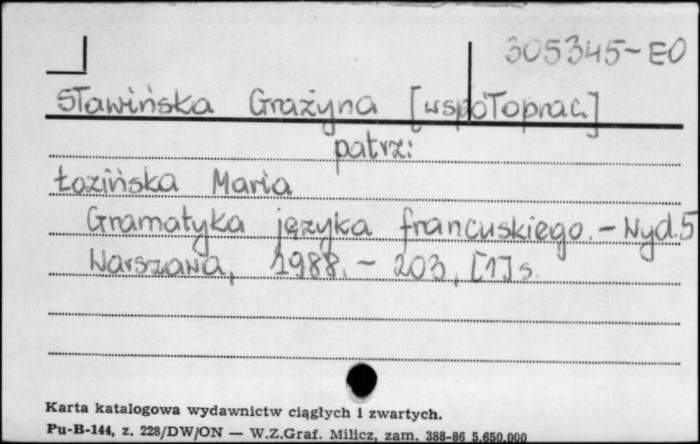 305345-EO
Sławińska Grażyna [współoprac.]
patrz:
Łozińska Maria
Gramatyka języka francuskiego. - Wyd. 5
Warszawa, 1988. - 203, [1] s.
Karta katalogowa wydawnictw ciągłych i zwartych.
Pu-B-144, z. 228/DW/ON — W.Z.Graf. Milicz, zam. 388-86 5.650.000